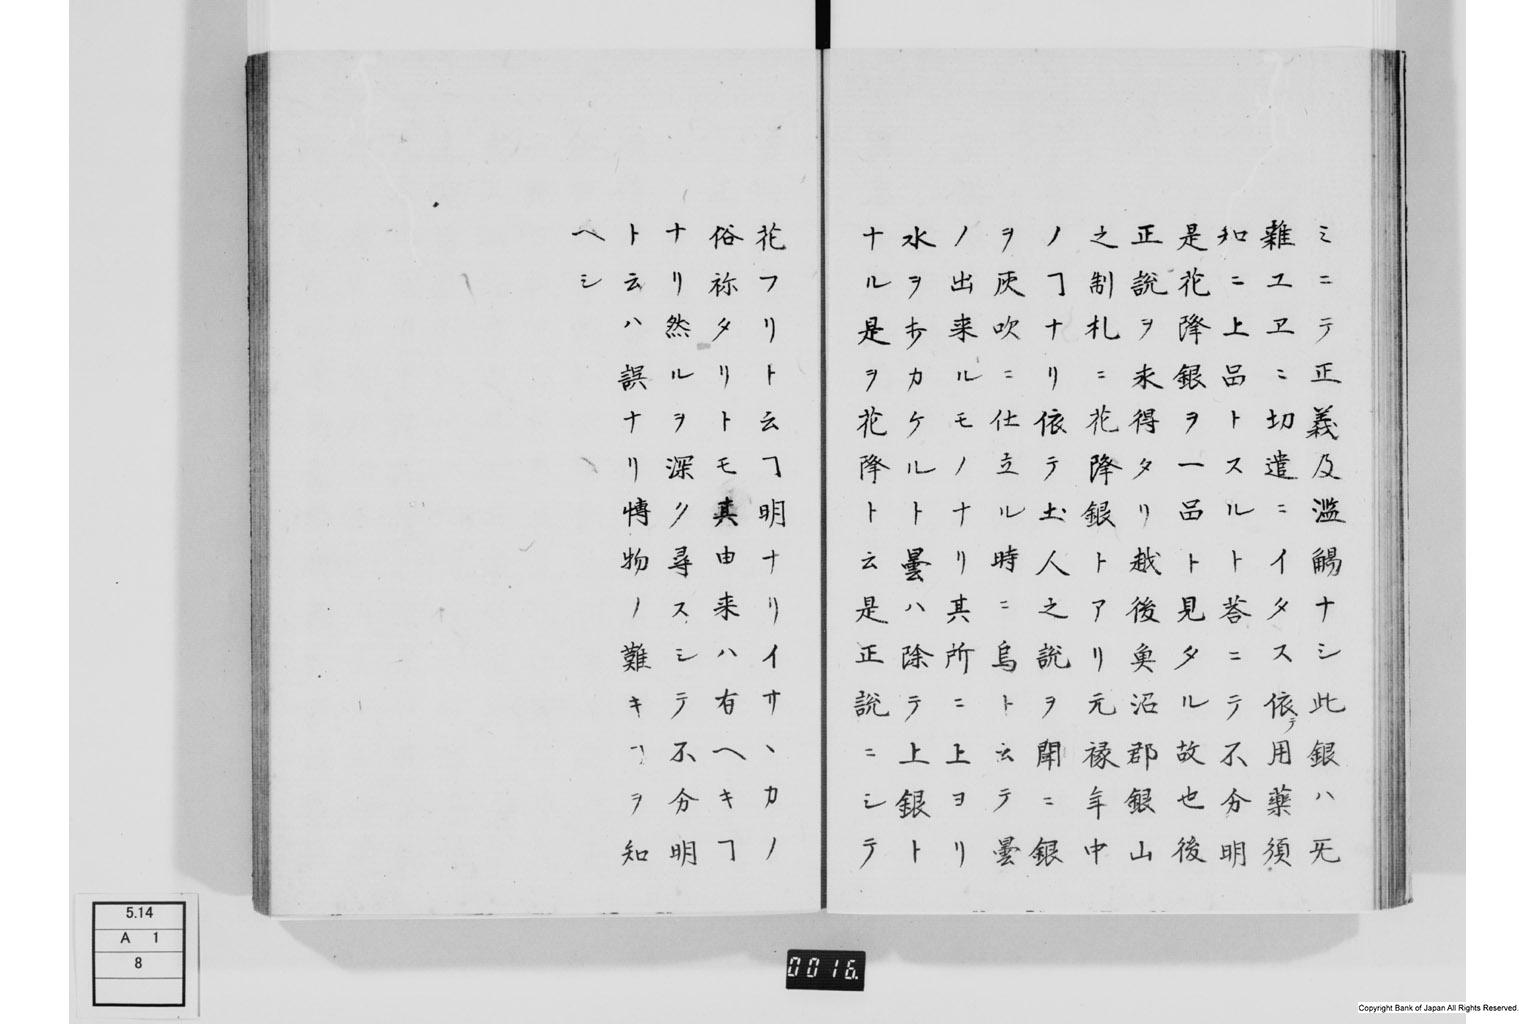 ミニテ正義及濫觴ナシ此銀ハ旡
雜ユヱニ切遣ニイタス依テ用藥須
知ニ上品トスルト荅ニテ不分明
是花降銀ヲ一品ト見タル故也後
正說ヲ求得タリ越後奥沼郡銀山
之制札ニ花降銀トアリ元禄年中
ノヿナリ依テ土人之說ヲ聞ニ銀
ヲ灰吹ニ仕立ル時ニ烏ト云テ曇
ノ出来ルモノナリ其所ニ上ヨリ
水ヲホカケルト曇ハ除テ上銀ト
ナル是ヲ花降ト云是正說ニシテ
花フリト云ヿ明ナリイサヽカノ
俗祢タリトモ真由来ハ有ヘキヿ
ナリ然ルヲ深ク尋スシテ不分明
ト云ハ誤ナリ博物ノ難キヿヲ知
ヘシ
5.14
A 1
8
0016.
Copyright Bank of Japan All Rights Reserved.